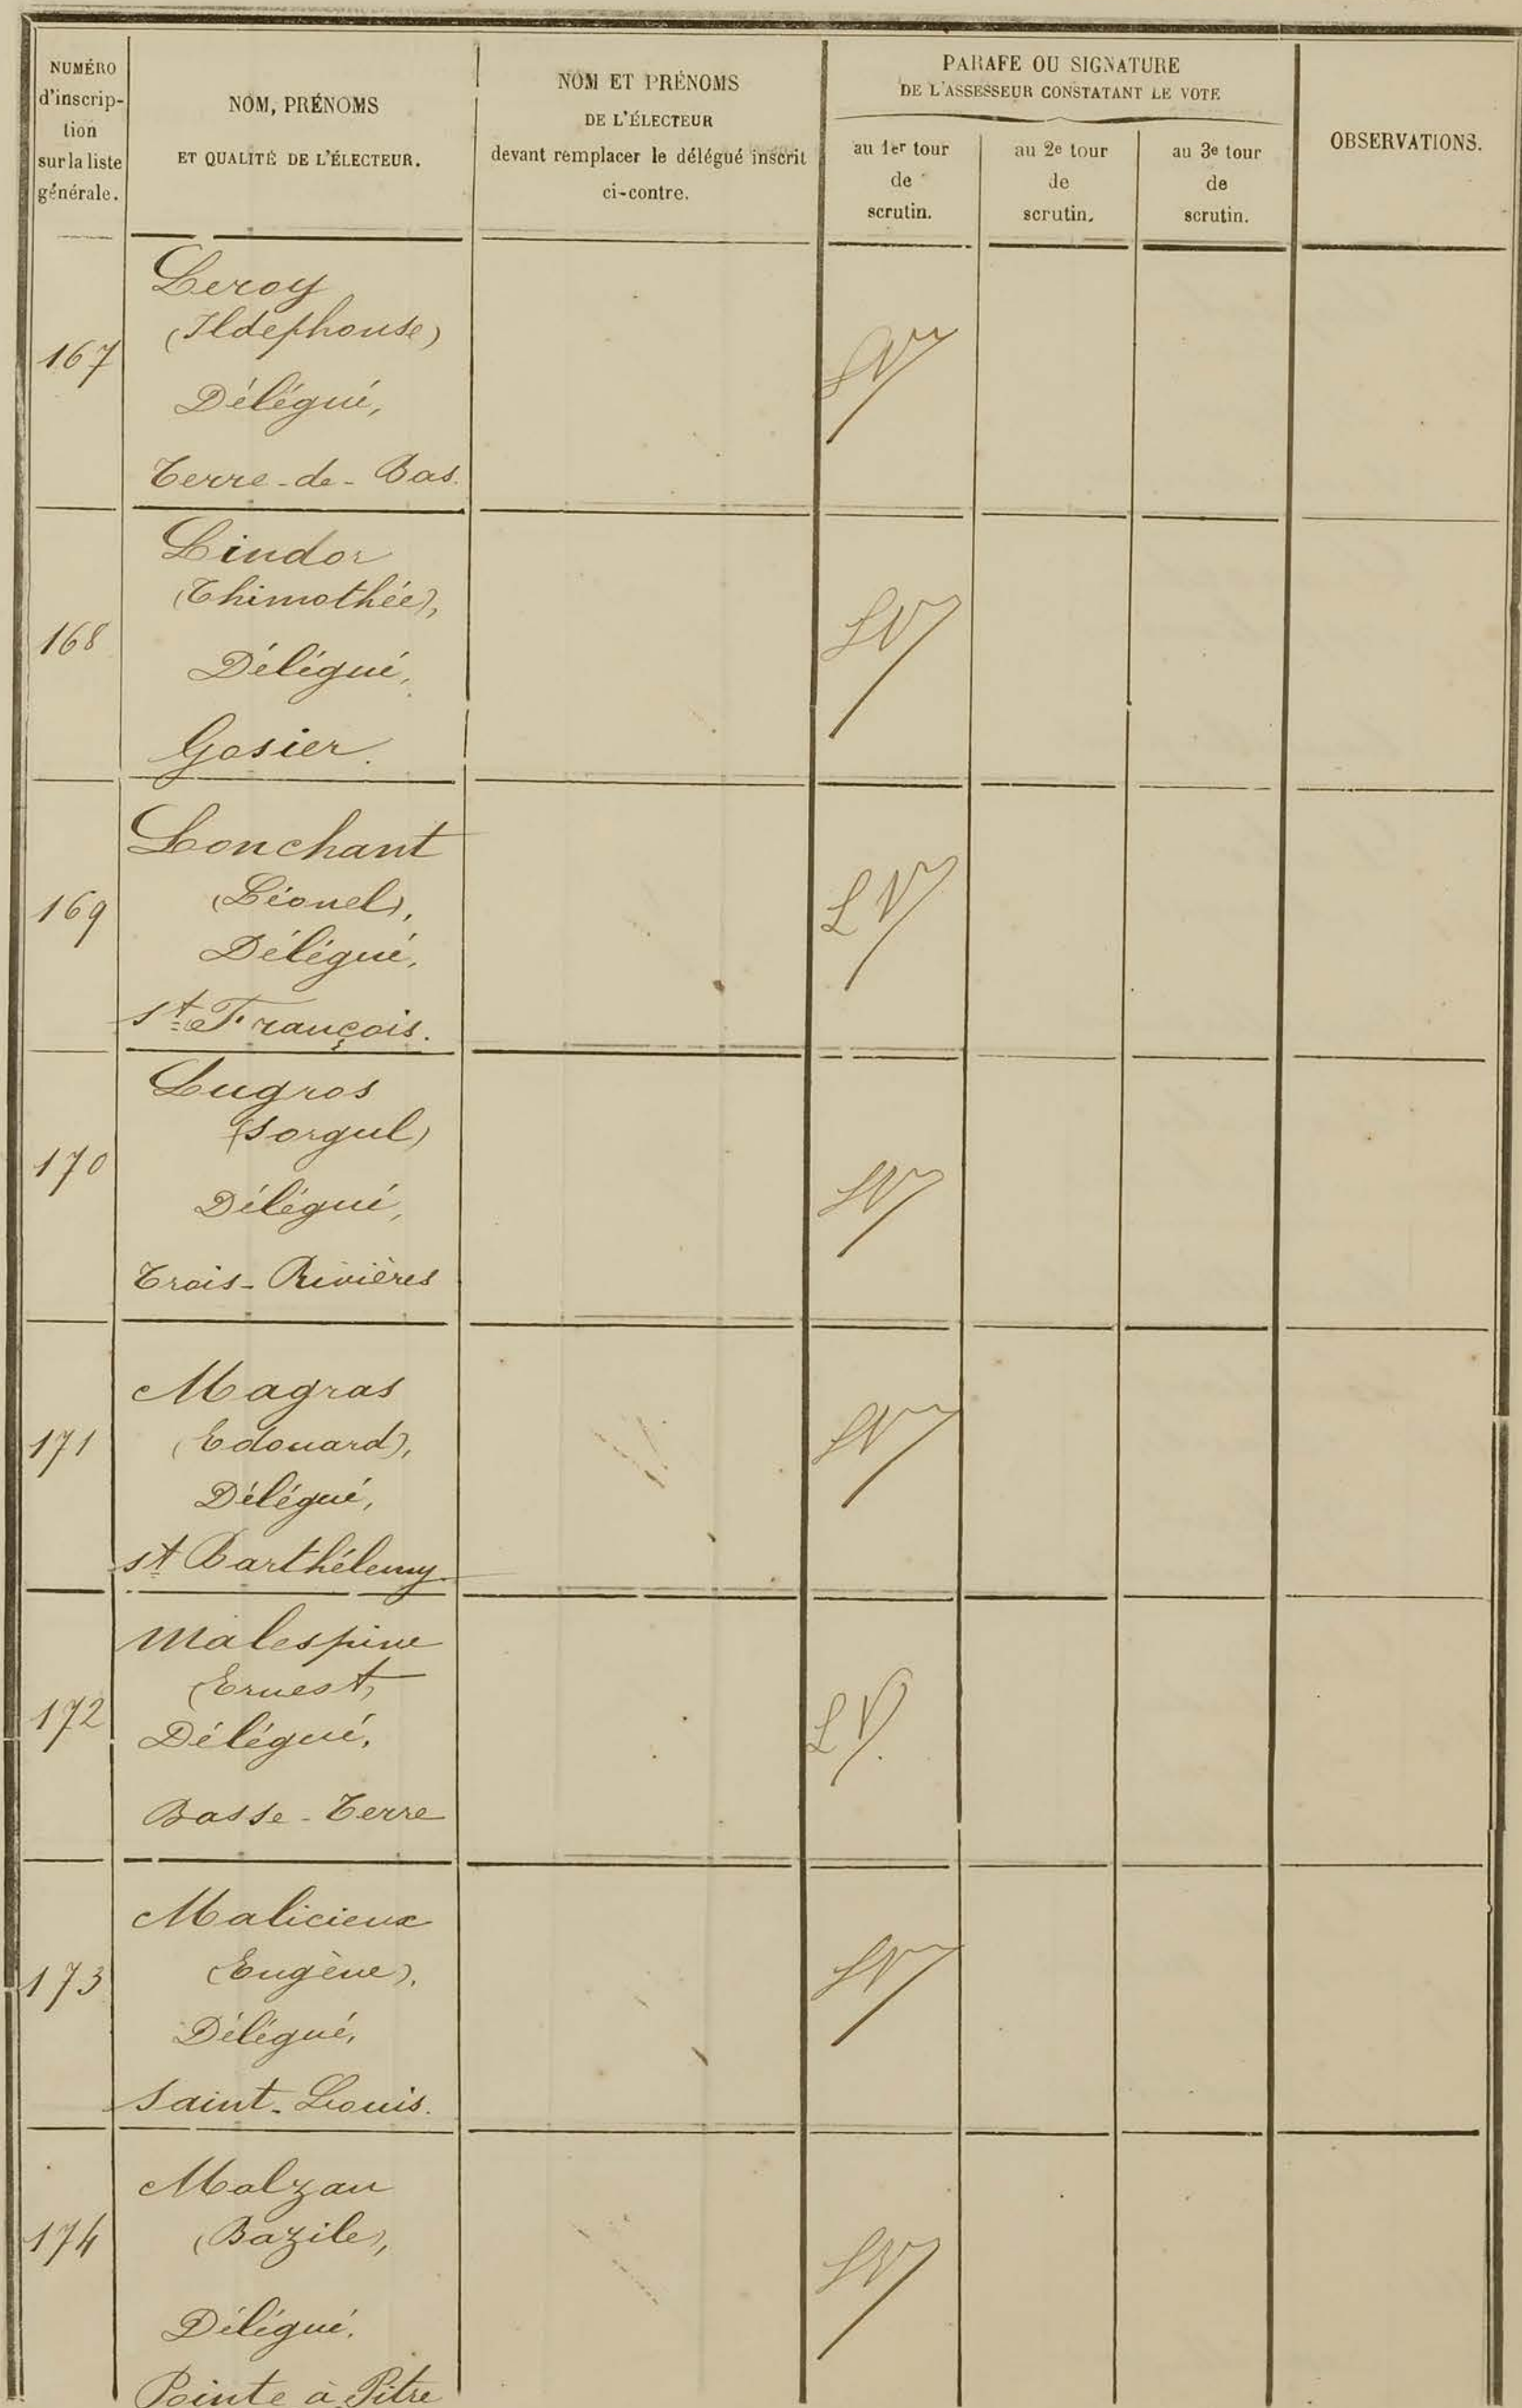 NUMÉRO
d'inscrip-
tion
sur la liste
générale.
NOM, PRÉNOMS
ET QUALITÉ DE L'ÉLECTEUR.
NOM ET PRÉNOMS
DE L'ÉLECTEUR
devant remplacer le délégué inscrit
ci-contre.
PARAFE OU SIGNATURE
DE L'ASSESSEUR CONSTATANT LE VOTE
au 1er tour
de
scrutin.
au 2e tour
de
scrutin.
au 3e tour
de
scrutin.
OBSERVATIONS.
Leroy
(Ildephonse)
167
Délégué,
Terre-de-Bas.
Lindor
(Thimothée),
168
LV
Délégué,
Gosier.
Lonchant
(Léonel),
169
LV
Délégué,
St François.
Lugros
(Sorgul)
170
LV
Délégué,
Trois-Rivières
Magras
(Edouard),
171
LV
Délégué,
St Barthélemy
Malespine
(Ernest,
172
LV
Délégué,
Basse-Terre
Malicieux
(Eugène),
173
LV
Délégué,
Saint-Louis.
Malzan
(Bazile),
174
LV
Délégué,
Pointe à Pitre